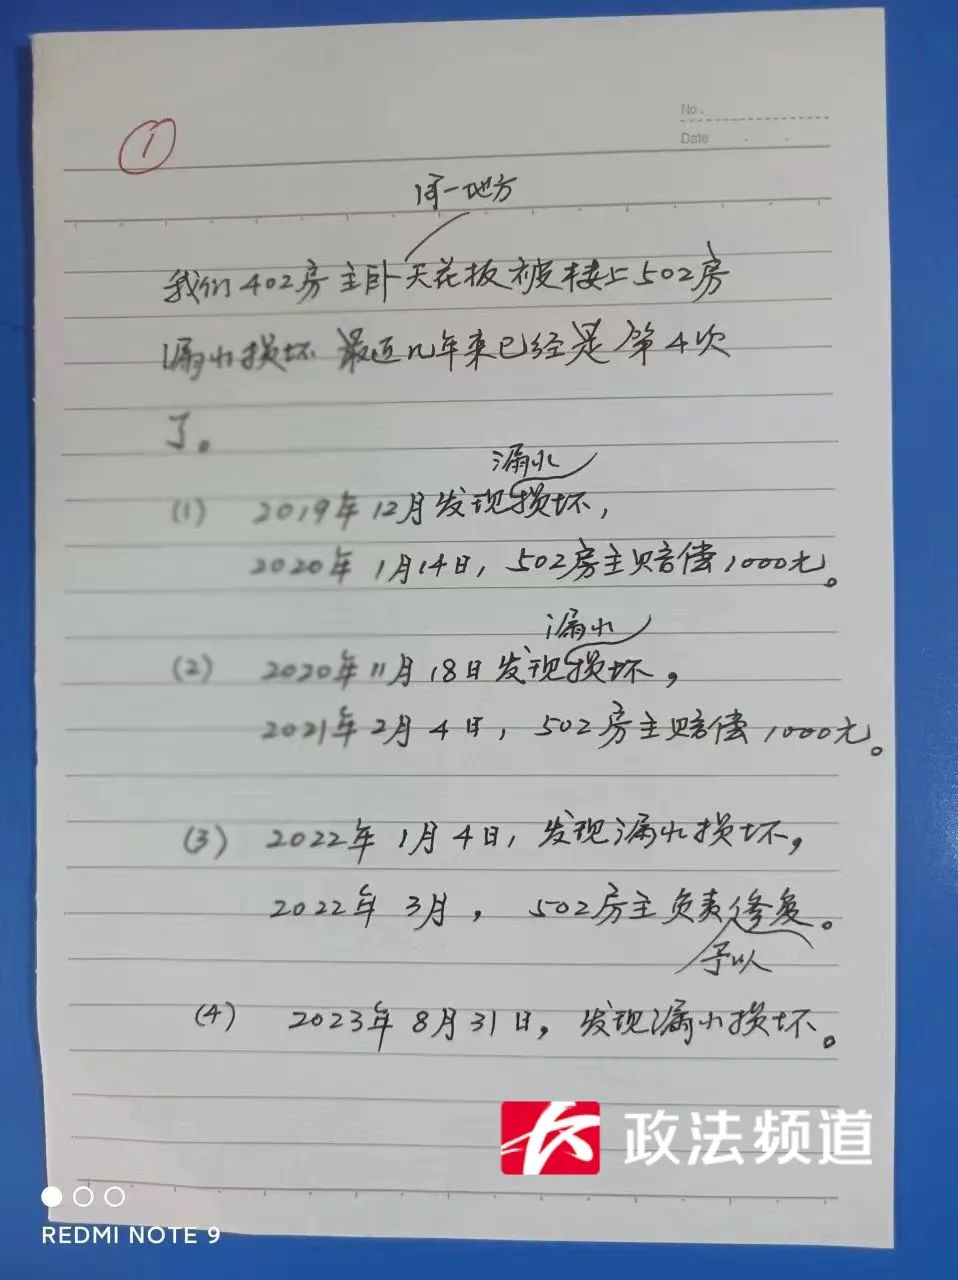 No.
Date
①
同一地方
我们402房主卧天花板被楼上502房
漏水损坏 最近几年来已经是第4次
了。
漏水
(1) 2019年12月发现损坏,
2020年1月14日, 502房主赔偿1000元。
漏水
(2) 2020年11月18日发现损坏,
2021年2月4日, 502房主赔偿1000元。
(3) 2022年1月4日, 发现漏水损坏,
2022年3月, 502房主负责修复。
予以
(4) 2023年8月31日, 发现漏水损坏。
政法频道
REDMI NOTE 9